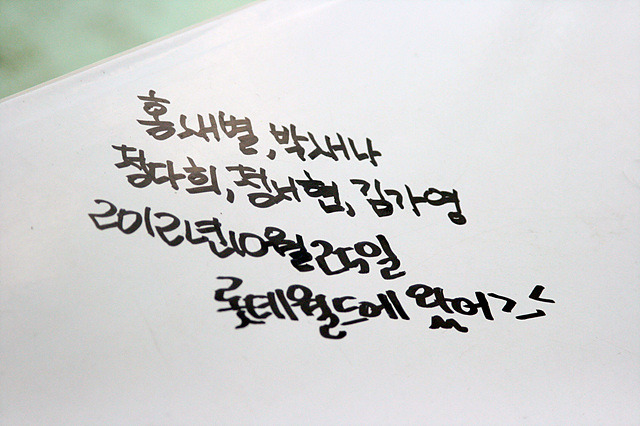 홍새별, 박새나
정다희, 정서현, 김가영
2012년 10월 25일
롯데월드에 왔어>_<